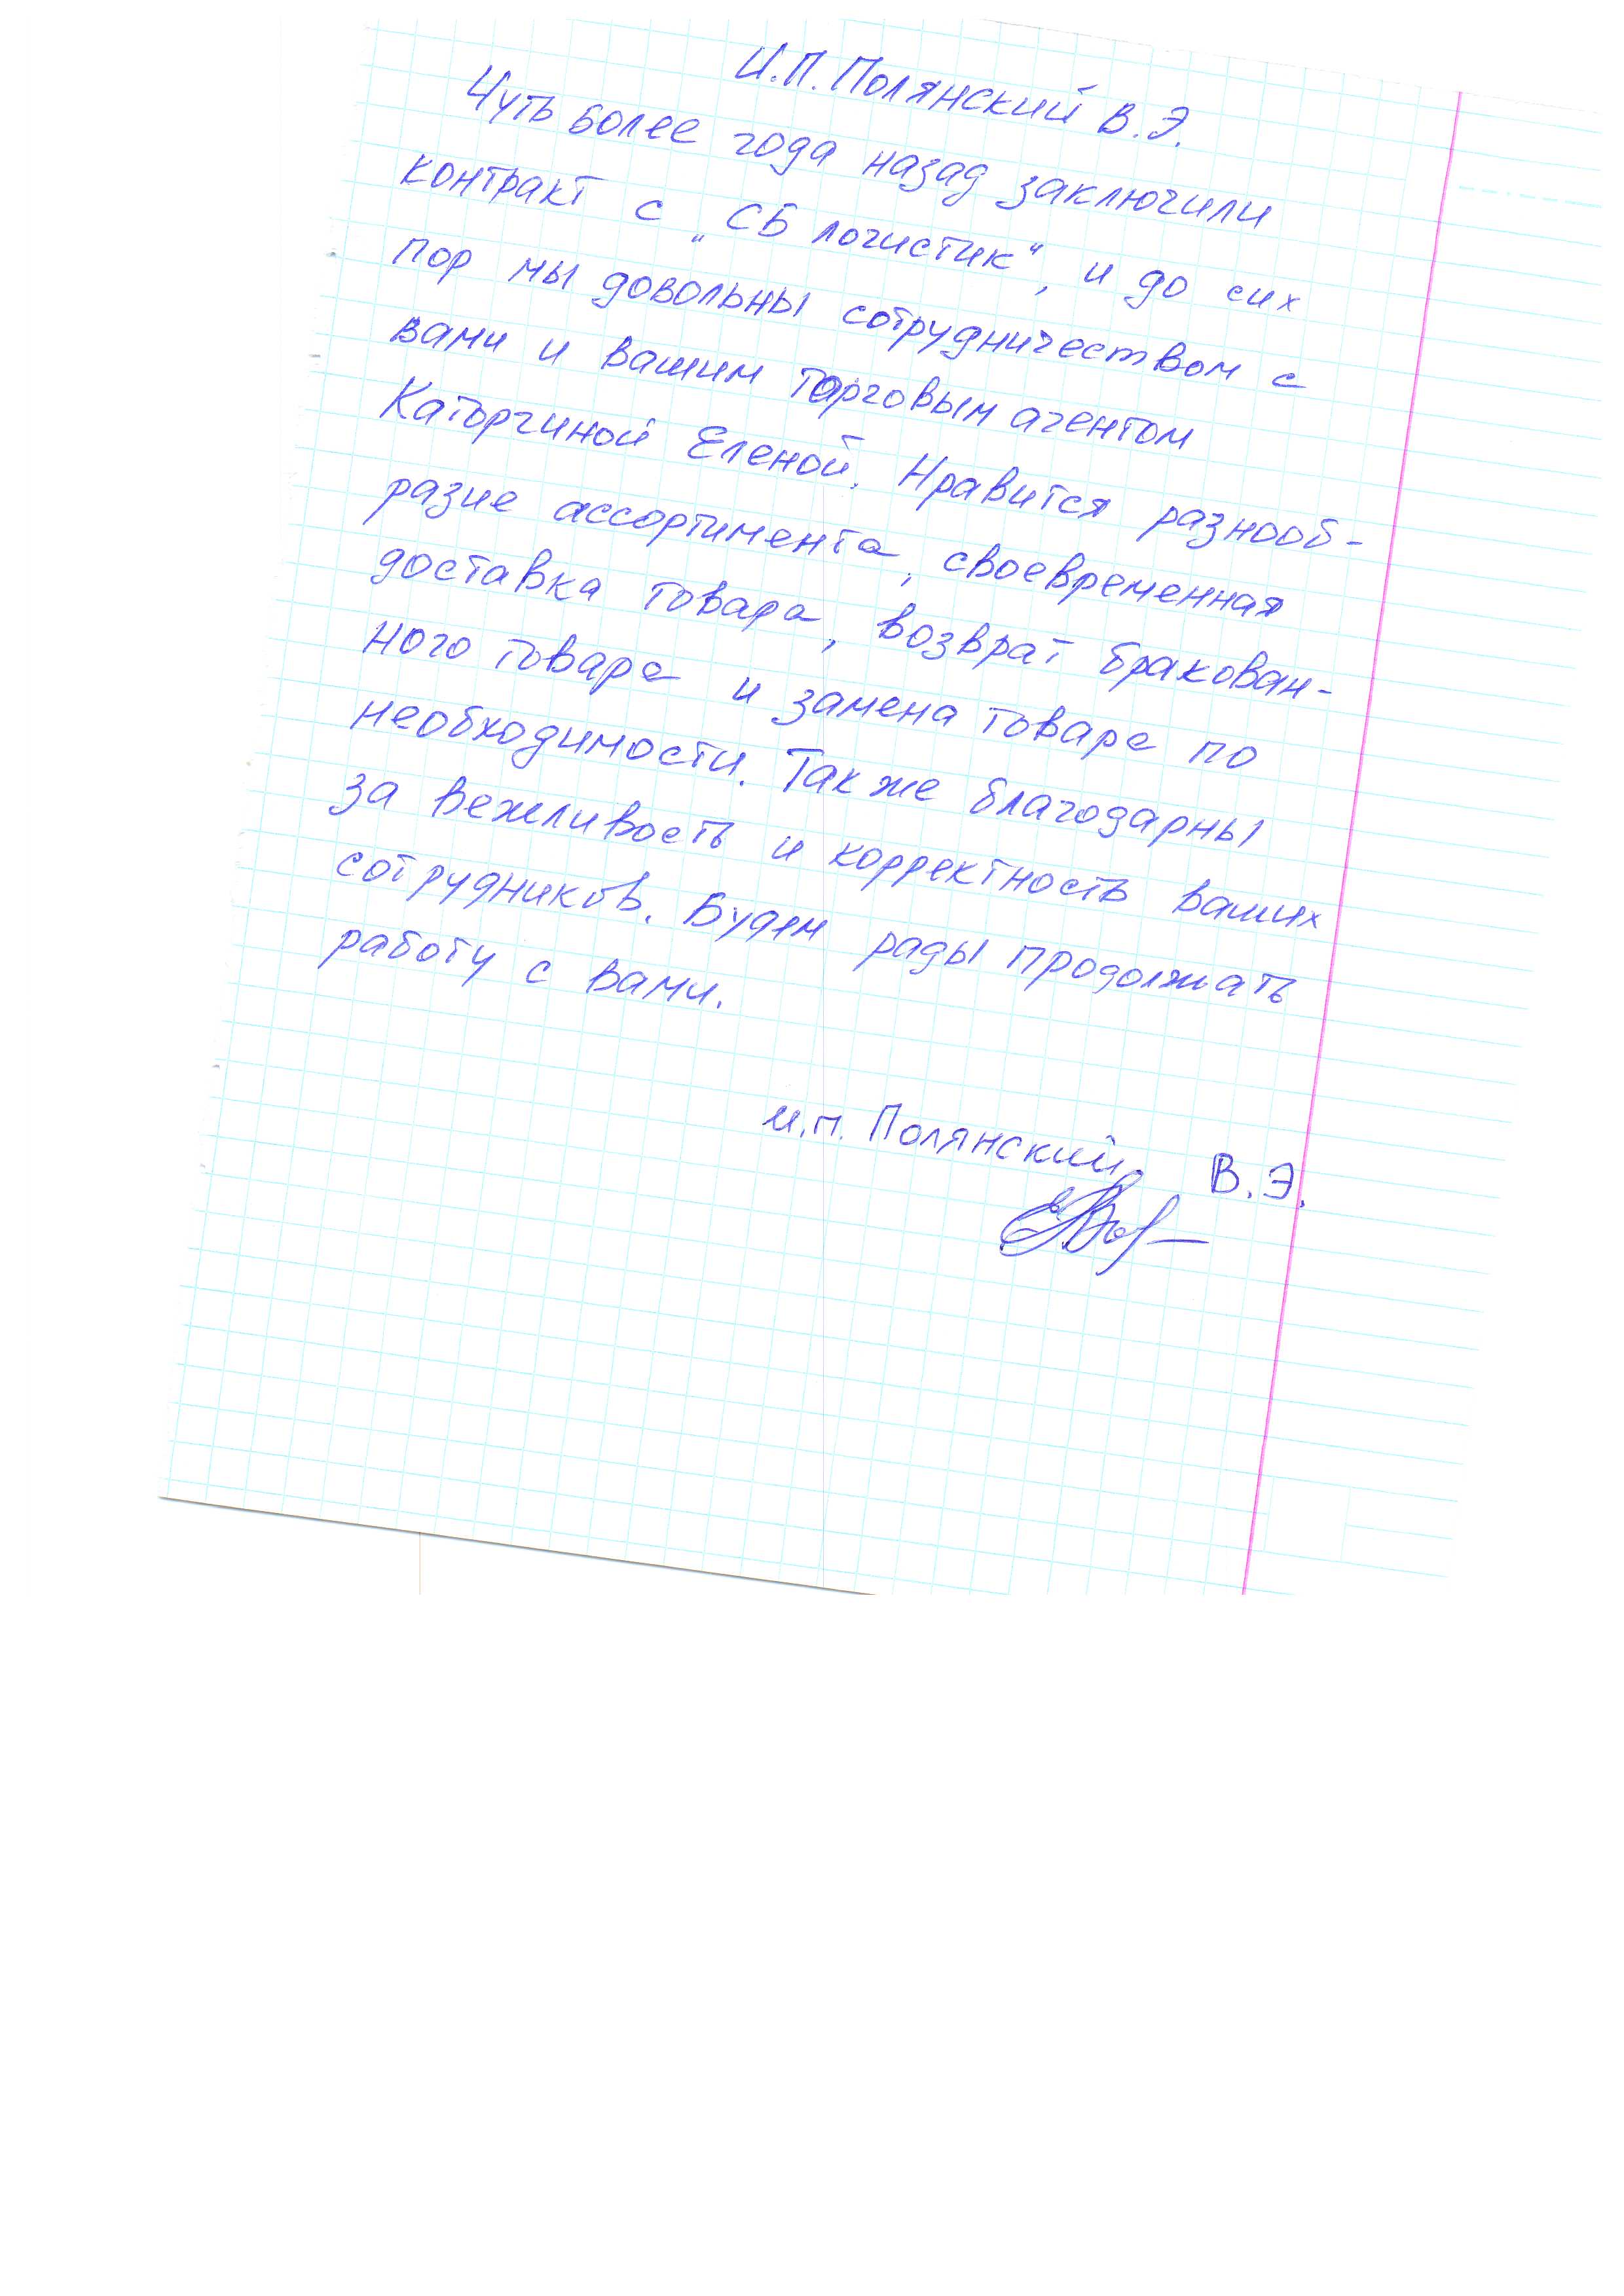 И.П. Полянский В.Э.
Чуть более года назад заключили
контракт с „СБ логистик“, и до сих
пор мы довольны сотрудничеством с
вами и вашим торговым агентом
Каторгиной Еленой. Нравится разнооб-
разие ассортимента, своевременная
доставка товара, возврат бракован-
ного товара и замена товара по
необходимости. Также благодарны
за вежливость и корректность ваших
сотрудников. Будем рады продолжать
работу с вами.
и.п. Полянский В.Э.